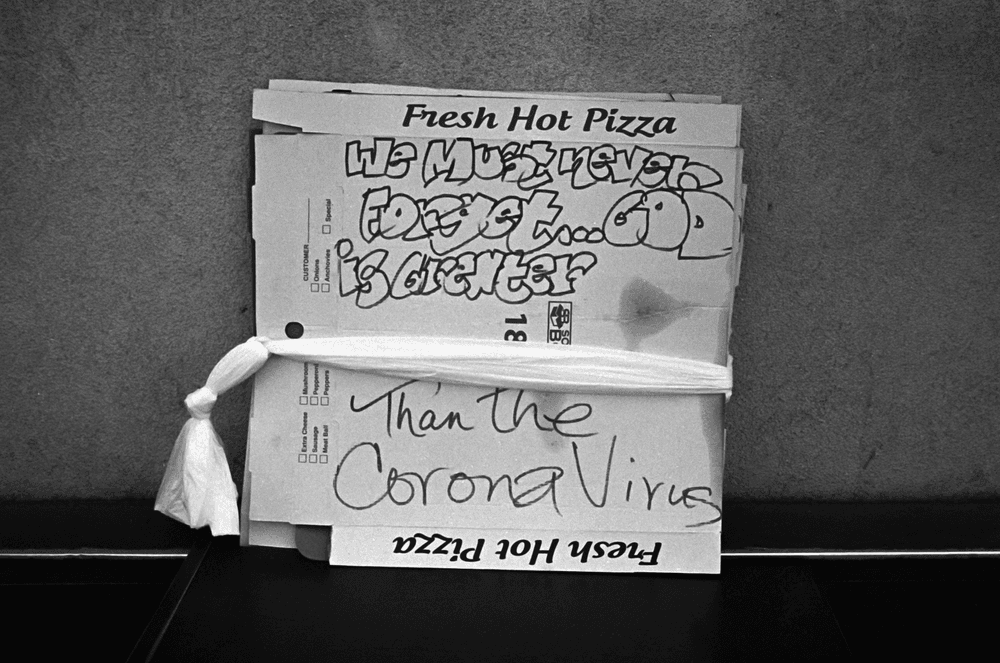 Fresh Hot Pizza
We Must never
Forget... GOD
is Greater
CUSTOMER
Onions
Anchovies
Special
18
Than the
Corona Virus
Extra Cheese
Sausage
Meat Ball
Mushroom
Pepperoni
Peppers
Fresh Hot Pizza